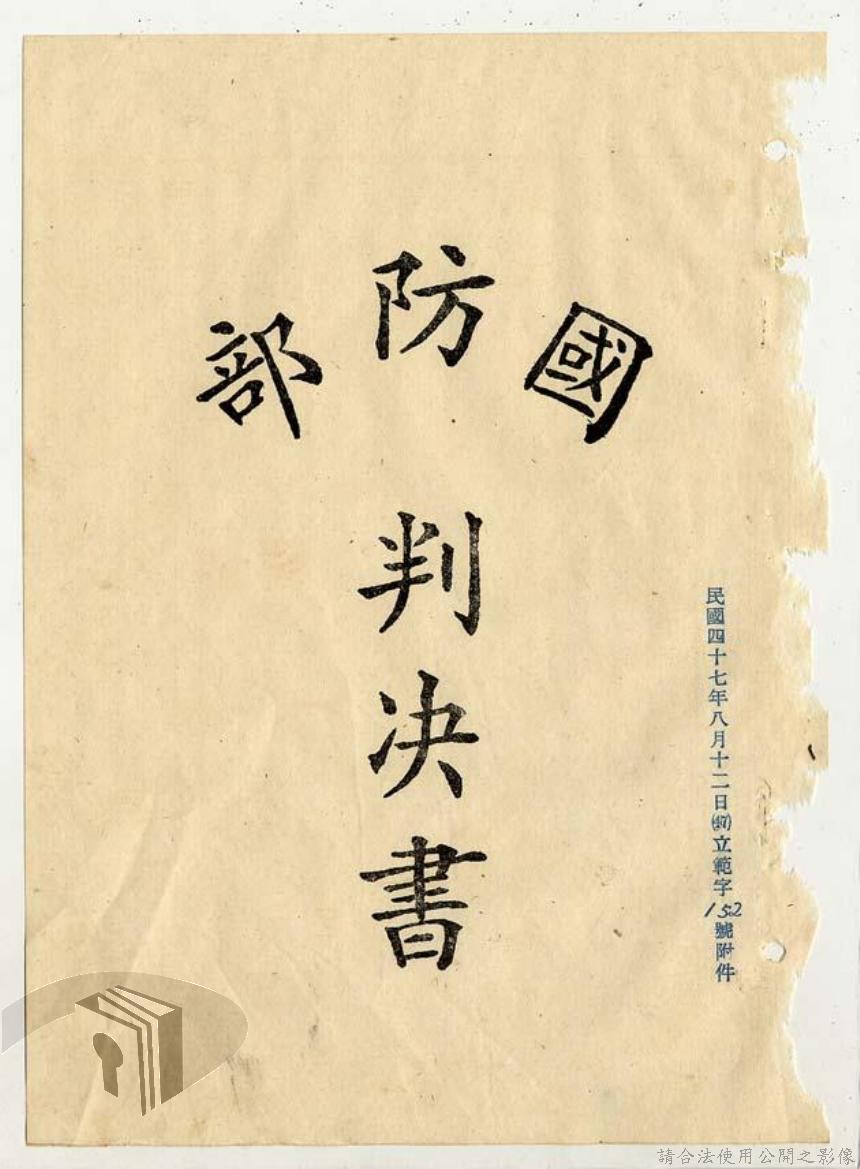 國防部
判决書
民國四十七年八月十二日(47)立範字152號附件
請合法使用公開之影像